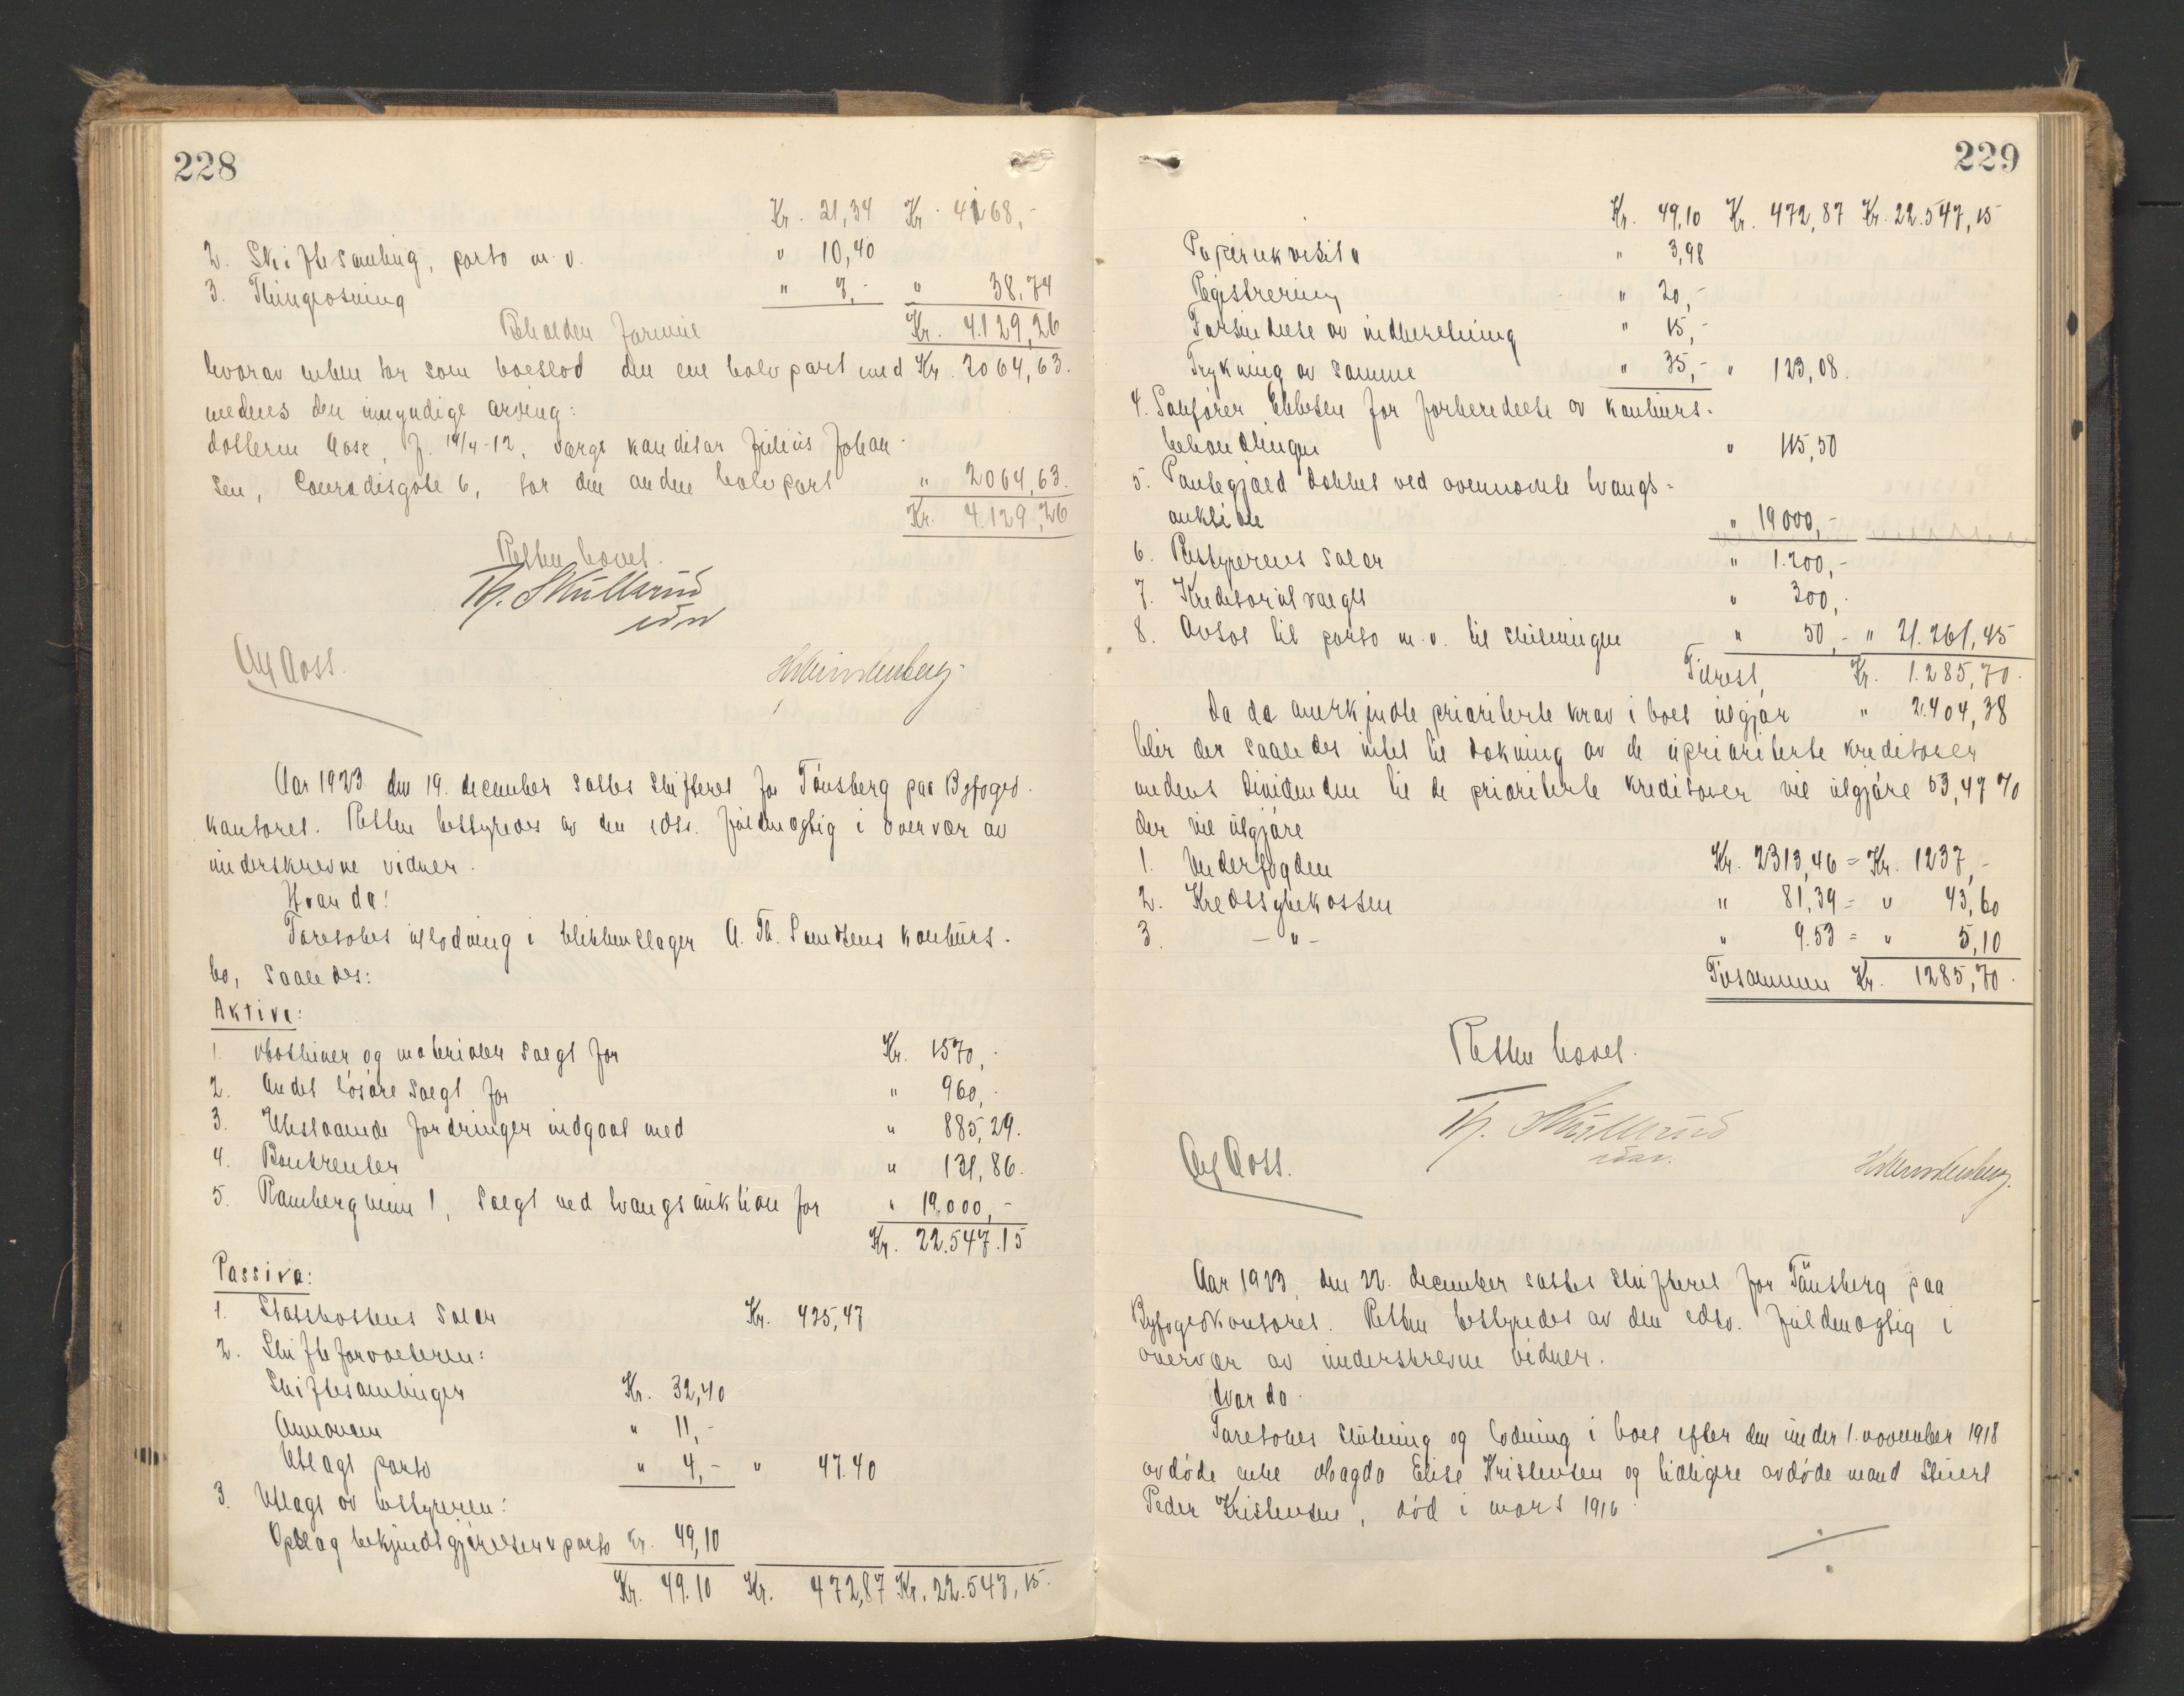 228
Kr. 21,34 Kr. 4168,-
2. Skiftesamling, porto m.v. " 10,40
3. Thinglæsning " 7,- " 38,74
Beholden formue Kr. 4.129,26
hvorav enken tar som boeslod den ene halvpart med Kr. 2064,63.
medens den umyndige arving:
datteren Aase, f. 14/4-12, værge konditor Julius Johan-
sen, Conradisgate 6, tar den anden halvpart " 2064,63.
Kr. 4.129,26
Retten hævet.
Th. Skullerud
edsv
Alf Aass.
Aar 1923 den 19. december sattes skifteret for Tønsberg paa Byfoged-
kontoret. Retten bestyredes av den edsv. fuldmægtig i overvær av
underskrevne vidner.
Hvorda!
Foretokes utlodning i blikkenslager A. Th. konkurs-
bo, saaledes:
Aktiva:
1. Maskiner og materialer solgt for Kr. 1570,-
2. Andet løsøre solgt for " 960,-
3. Utestaaende fordringer indgaat med " 885,29.
4. Bankrenter " 131,86.
5. Rambergveien 1, solgt ved tvangsauktion for " 19.000,-
Kr. 22.547.15
Passiva:
1. Statskassens salær Kr. 425,47
2. Skifteforvalteren:
Skiftesamlinger Kr. 32,40
Annoncen " 11,-
Utlagt porto " 4,- " 47.40
3. Utlagt av bestyreren:
Opslag bekjendtgjørelser & porto Kr. 49,10
Kr. 49.10 Kr. 472,87 Kr. 22.547,15.
229
Kr. 49,10 Kr. 472,87 Kr. 22.547,15
Papirrekvisita " 3,98
Registrering " 20,-
Forsendelse av indberetning " 15,-
Trykning av samme " 35,- " 123,08.
4. Sakfører Ebbesen for forberedelse av konkurs-
behandlingen " 115,50
5. Pantegjæld dækket ved ovennævnte tvangs-
auktion " 19000,-
6. Bestyrerens salær " 1.200,-
7. Kreditorutvalget " 300,-
8. Avsat til porto m.v. til slutningen " 50,- " 21.261,45
Tilrest Kr. 1.285,70.
Da de anerkjendte prioriterte krav i boet utgjør " 2.404,38
blir der saaledes intet til dækning av de uprioriterte kreditorer
medens dividenden til de prioriterte kreditorer vil utgjøre 53,47 %
der vil utgjøre
1. Underfogden Kr. 2313,46 = Kr. 1237,-
2. Kredssykekassen " 81,39 = " 43,60
3. - " - " 9.53 = " 5,10
Tilsammen Kr. 1285,70.
Retten hævet.
Th. Skullerud
edsv.
Alf Aass.
Aar 1923, den 22. december sattes skifteret for Tønsberg paa
Byfogedkontoret. Retten bestyredes av den edsv. fuldmægtig i
overvær av underskrevne vidner.
Hvorda.
Foretokes slutning og lodning i boet efter den under 1. november 1918
avdøde enke Magda Elise Kristensen og tidligere avdøde mand Stuert
Peder Kristensen, død i mars 1916